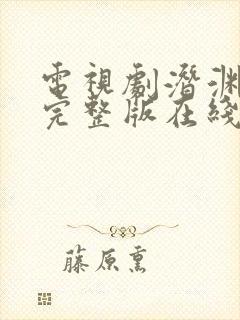 電視劇潛淵
完整版在綫
藤原熏